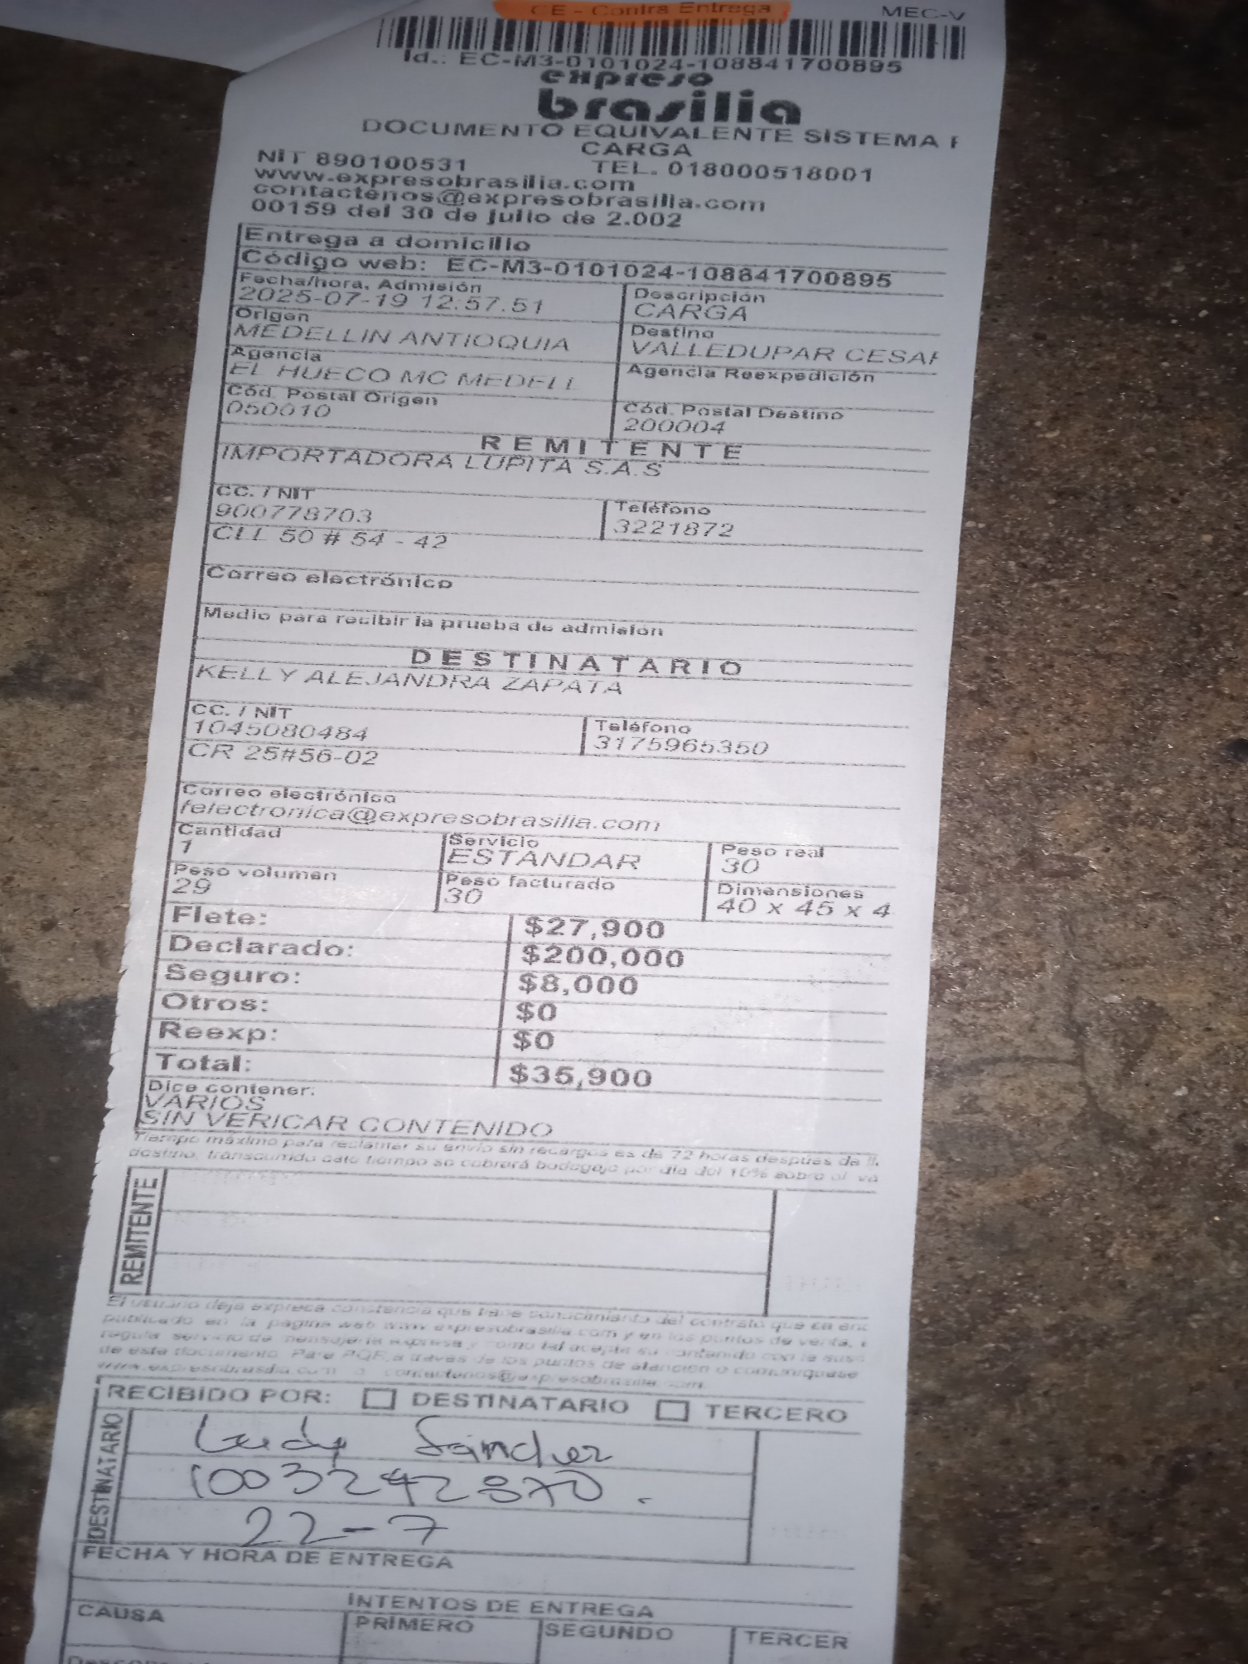 CE - Contra Entrega
MEC-V
Id.: EC-M3-0101024-108841700895
expreso
brasilia
DOCUMENTO EQUIVALENTE SISTEMA
CARGA
NIT 890100531 TEL. 018000518001
www.expresobrasilia.com
contactenos@expresobrasilia.com
00159 del 30 de julio de 2.002
Entrega a domicilio
Código web: EC-M3-0101024-108841700895
Fecha/hora, Admisión Descripción
2025-07-19 12:57.51 CARGA
Origen Destino
MEDELLIN ANTIOQUIA VALLEDUPAR CESAR
Agencia Agencia Reexpedición
EL HUECO MC MEDELL
Cód. Postal Origen Cód. Postal Destino
050010 200004
REMITENTE
IMPORTADORA LUPITA S.A.S
CC. / NIT Teléfono
900778703 3221872
CLL 50 # 54 - 42
Correo electrónico
Medio para recibir la prueba de admisión
DESTINATARIO
KELLY ALEJANDRA ZAPATA
CC. / NIT Teléfono
1045080484 3175965350
CR 25#56-02
Correo electrónico
felectronica@expresobrasilia.com
Cantidad Servicio Peso real
1 ESTANDAR 30
Peso volumen Peso facturado Dimensiones
29 30 40 x 45 x 4
Flete: $27,900
Declarado: $200,000
Seguro: $8,000
Otros: $0
Reexp: $0
Total: $35,900
Dice contener:
VARIOS
SIN VERICAR CONTENIDO
Tiempo máximo para reclamar su envío sin recargos es de 72 horas después de
destino, transcurrido este tiempo se cobrará bodegaje por día del 10% sobre el va
REMITENTE
El usuario deja expresa constancia que tiene conocimiento del contrato que se enc
publicado en la pagina web www.expresobrasilia.com y en los puntos de venta,
regula servicio de mensajería expresa y como tal acepta su contenido con la sus
de este documento. Para PQR a través de los puntos de atención o comuníquese
www.expresobrasilia.com o contactenos@expresobrasilia.com
RECIBIDO POR: DESTINATARIO TERCERO
DESTINATARIO
Leidy Sánchez
22-7
FECHA Y HORA DE ENTREGA
INTENTOS DE ENTREGA
CAUSA PRIMERO SEGUNDO TERCER